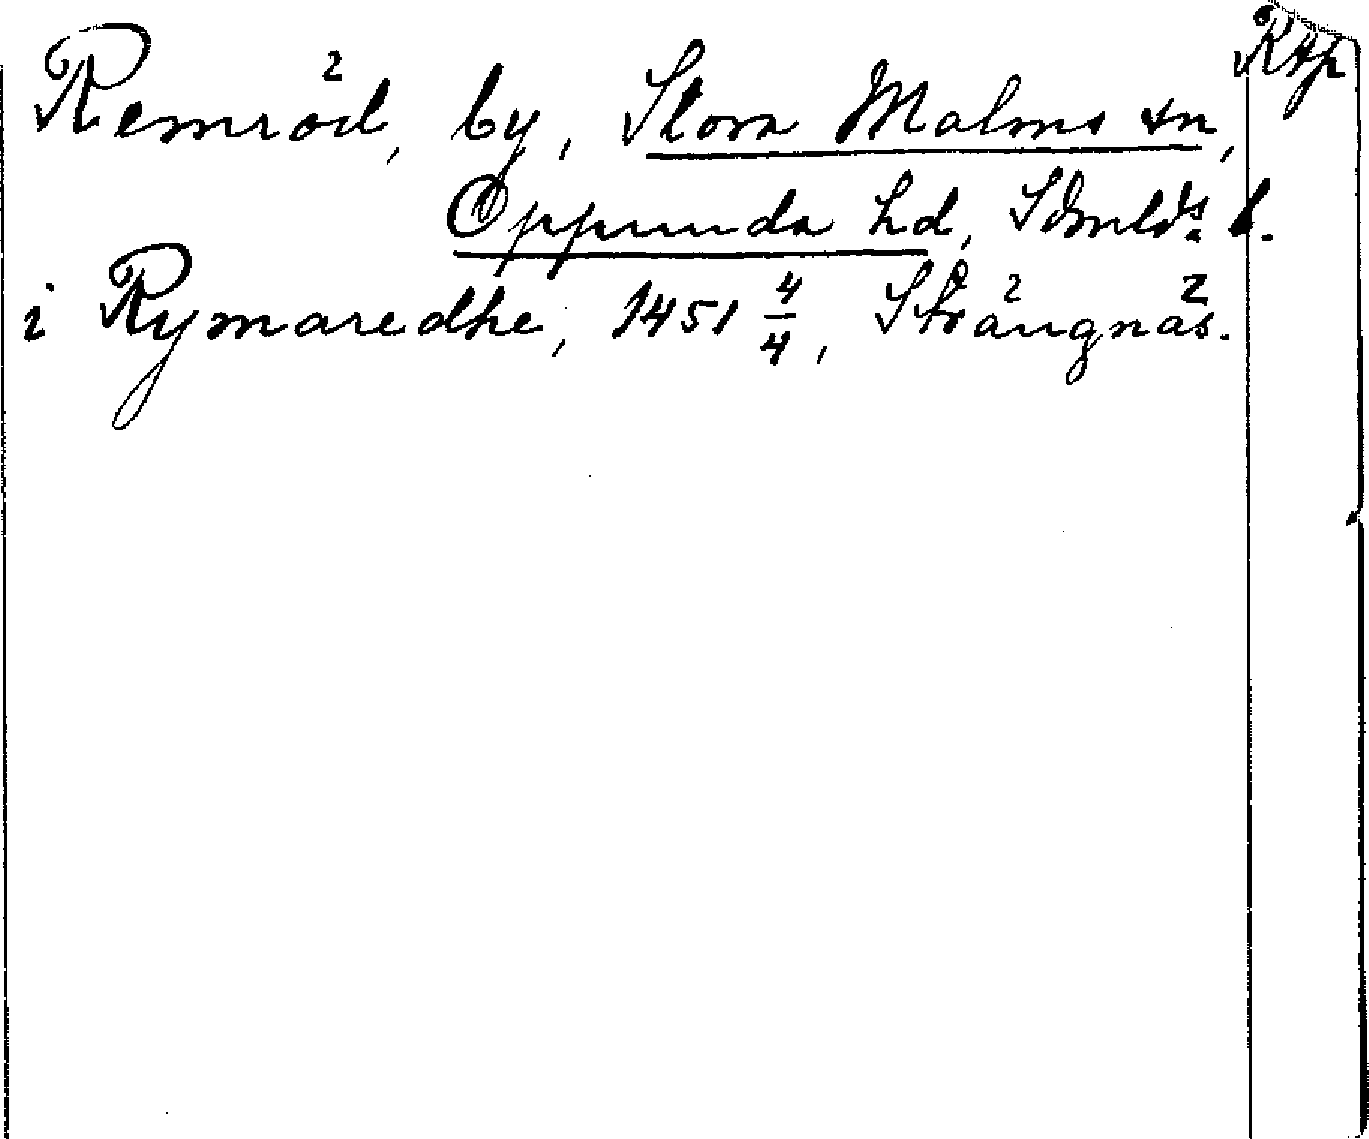 Remröd, by, Stora Malms sn, Rtp
Oppunda hd, Sdmlds. l.
i Rymaredhe, 1451 4/4, Strängnäs.